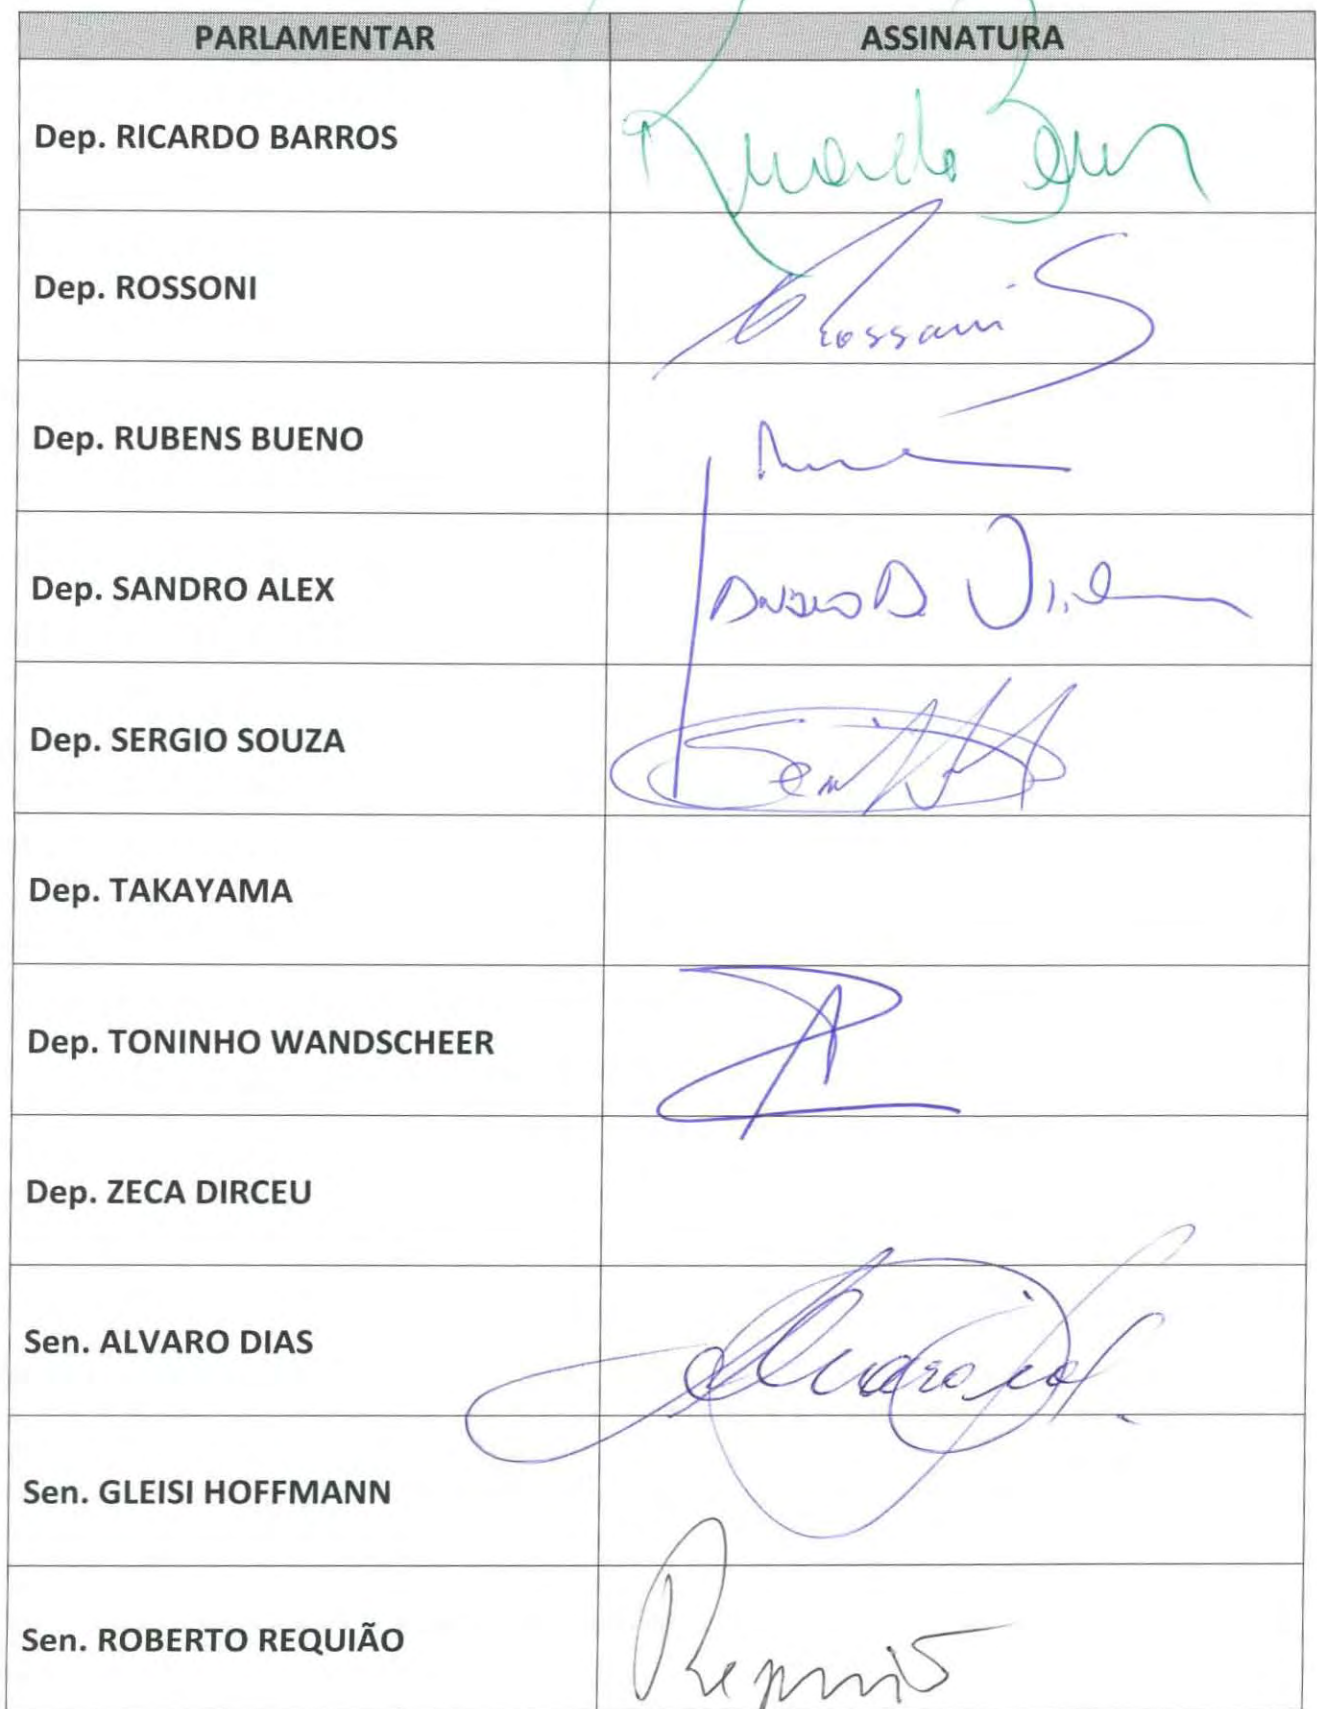 PARLAMENTAR ASSINATURA
Dep. RICARDO BARROS Ricardo Barros
Dep. ROSSONI Rossoni
Dep. RUBENS BUENO
Dep. SANDRO ALEX
Dep. SERGIO SOUZA
Dep. TAKAYAMA
Dep. TONINHO WANDSCHEER
Dep. ZECA DIRCEU
Sen. ALVARO DIAS Alvaro Dias
Sen. GLEISI HOFFMANN
Sen. ROBERTO REQUIÃO Requião